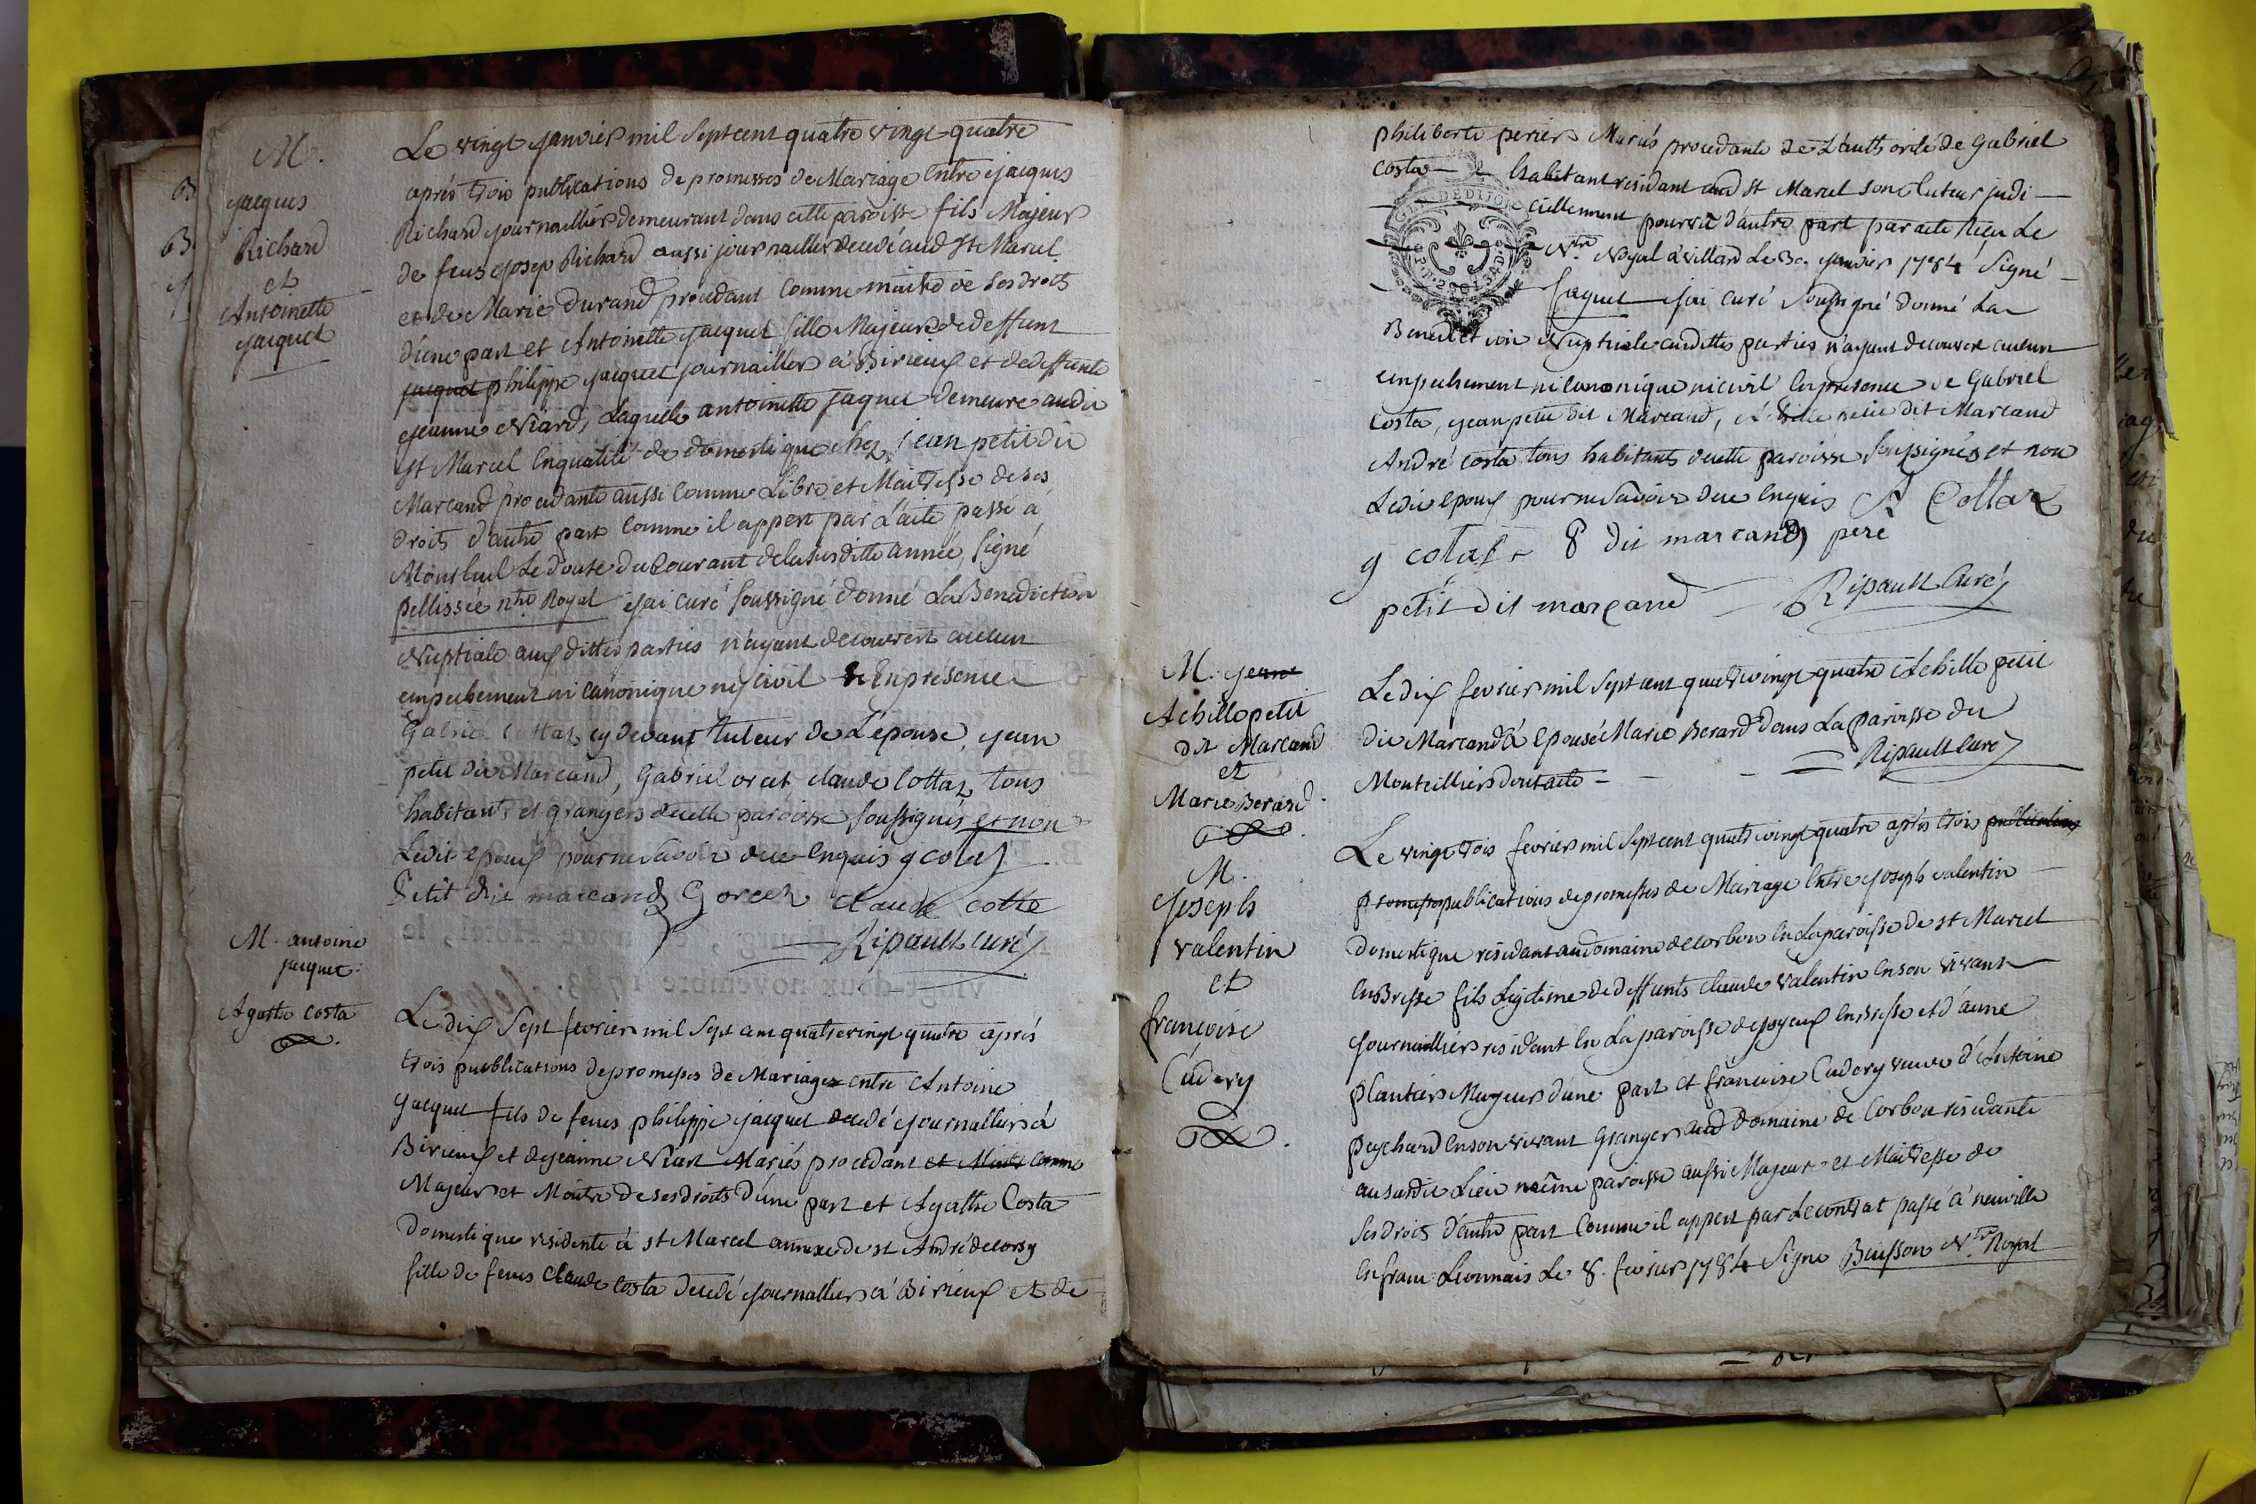 M.
Jacques
Richard
et
Antoinette
Jacquet
Le vingt janvier mil sept cent quatre vingt-quatre
après trois publications de promesses de Mariage Entre Jacques
Richard journallier demeurant dans cette paroisse fils Majeur
de feus Josep Richard aussi journallier decedé aud St Marcel
et de Marie Durand procedant comme maitre de ses droits
d'une part et Antoinette Jacquet fille Majeure de deffunt
jacquet philippe jacquet journaillier à Birieux et de deffunte
Jeanne Niard, Laquelle antoinette jaquet demeure audit
St Marcel En qualité de domestique chez jean petit dit
Marcand procedante aussi comme Libre et Maitresse de ses
droits d'autre part comme il appert par L'acte passé à
Montluel Le douse du Courant de la susditte année, signé
pellissée nre Royal j'ai curé soussigné donné La Benediction
Nuptiale aux dittes parties n'ayant decouvert aucun
empechement ni canonique ny civil En présence
Gabriel Cottaz cy devant tuteur de L'épouse, jean
petit dit Marcand, Gabriel orcet claude Cottaz tous
habitants et grangers de cette paroisse soussignés et non
Ledit epoux pour ne savoir de ce enquis g cotaz
Petit dit marcand G orcet claude cotte
Ripault Curé
M. antoine
jacquet
Agathe costa
Le dix sept fevrier mil sept cent quatre vingt quatre après
trois publications de promesses de Mariage entre Antoine
jacquet fils de feus philippe jacquet decedé journallier à
Birieux et de jeanne Niart Mariés procedant et comme
Majeur et Maitre de ses droits d'une part et Agathe Costa
Domestique residente à st Marcel annexe de st André de corsy
fille de feus Claude Costa decedé journallier à Birieux et de
philiberte perier Mariés procedante de L'authorité de Gabriel
Costa habitant residant aud st Marcel son tuteur judi
ciellement pourvu d'autre part par acte Reçu Le
Nre Royal à villard Le 30 janvier 1784 signé
jaquet j'ai curé soussigné donné La
Benediction Nuptiale auxdittes parties n'ayant decouvert aucun
empechement ni canonique ni civil En presence de Gabriel
Costa, jean petit dit Marcand, petit dit Marcand
André costa tous habitants de cette paroisse soussignés et non
Ledit epoux pour ne savoir de ce enquis A Collaz
g cotaz P dit marcand pere
petit dit marcand Ripault Curé
M. jean
Achille petit
dit Marcand
et
Marie Berard
Le dix fevrier mil sept cent quatre vingt quatre Achille petit
dit Marcand à epousé Marie Berard dans La paroisse du
Montellier dont acte Ripault Curé
M.
Joseph
valentin
et
françoise
Cudery
Le vingt trois fevrier mil sept cent quatre vingt quatre après trois publications
promes publications de promesses de Mariage Entre Joseph valentin
domestique residant au domaine de corbou En La paroisse de st Marcel
En Bresse fils Legitime de deffunts claude valentin En son vivant
journallier residant En La paroisse de joyeux En Bresse et d'anne
plantier Majeur d'une part et françoise Cudery veuve d'Antoine
peychard En son vivant Granger aud domaine de Corbou residante
au susdit Lieu même paroisse aussi Majeur et Maitresse de
ses droits d'autre part Comme il appert par Le contrat passé à neuville
En franc Lionnais Le 8. fevrier 1784 signé Buisson Nre Royal